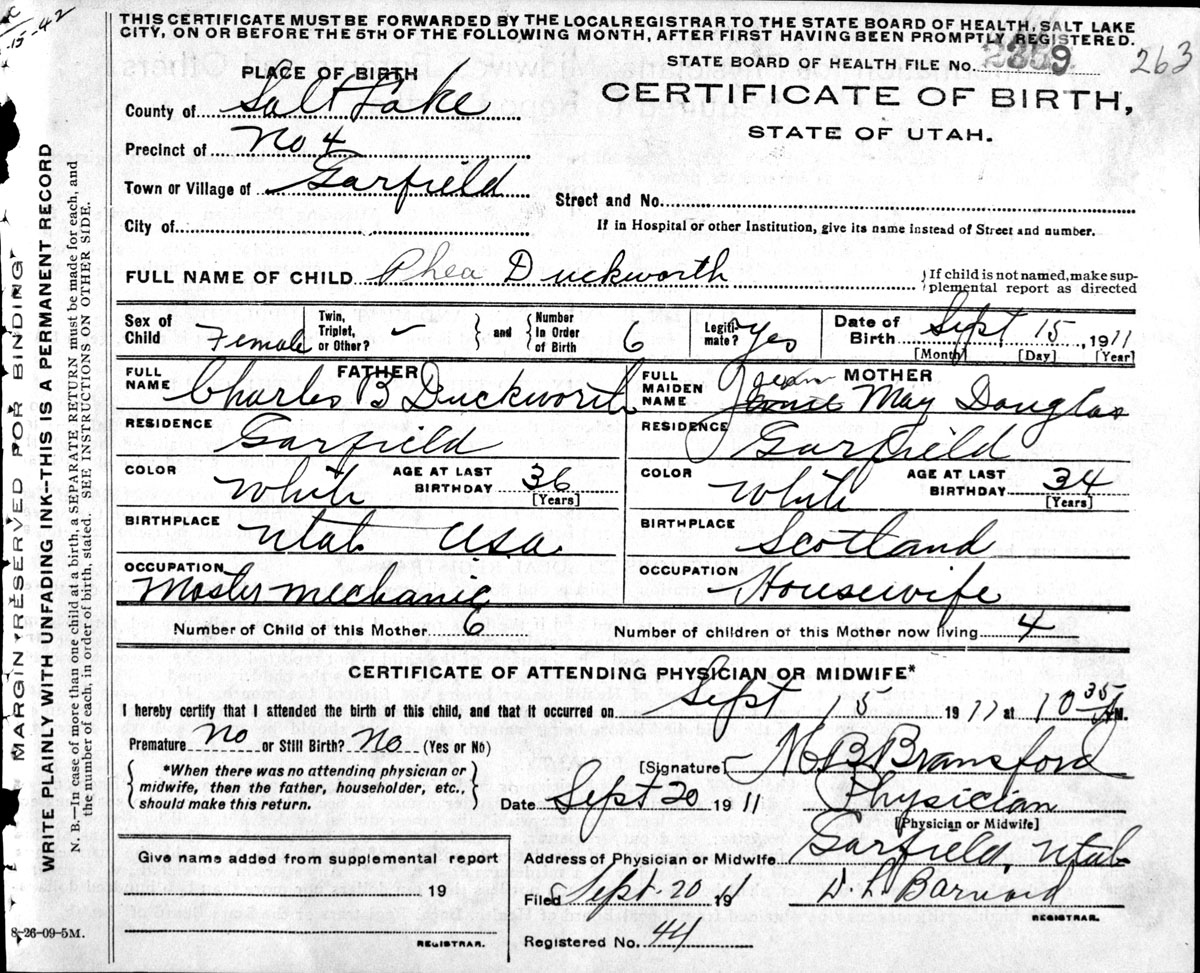 15-42
THIS CERTIFICATE MUST BE FORWARDED BY THE LOCAL REGISTRAR TO THE STATE BOARD OF HEALTH, SALT LAKE
CITY, ON OR BEFORE THE 5TH OF THE FOLLOWING MONTH, AFTER FIRST HAVING BEEN PROMPTLY REGISTERED.
STATE BOARD OF HEALTH FILE No. 263
CERTIFICATE OF BIRTH,
STATE OF UTAH.
PLACE OF BIRTH
County of Salt Lake
Precinct of No 4
Town or Village of Garfield
Street and No.
City of
If in Hospital or other Institution, give its name instead of Street and number.
FULL NAME OF CHILD Rhea Duckworth
If child is not named, make sup-
plemental report as directed
Sex of Child Female
Twin, Triplet, or Other? ✓ and Number in Order of Birth 6
Legiti-mate? Yes
Date of Birth Sept 15 1911
[Month] [Day] [Year]
FATHER
FULL NAME Charles B Duckworth
RESIDENCE Garfield
COLOR White AGE AT LAST BIRTHDAY 36
[Years]
BIRTHPLACE Utah USA
OCCUPATION Master mechanic
MOTHER
FULL MAIDEN NAME Jean May Douglas
RESIDENCE Garfield
COLOR White AGE AT LAST BIRTHDAY 34
[Years]
BIRTHPLACE Scotland
OCCUPATION Housewife
Number of Child of this Mother 6 Number of children of this Mother now living 4
CERTIFICATE OF ATTENDING PHYSICIAN OR MIDWIFE*
I hereby certify that I attended the birth of this child, and that it occurred on Sept 15 1911 at 10 35 M.
Premature No or Still Birth? No (Yes or No)
*When there was no attending physician or
midwife, then the father, householder, etc.,
should make this return.
[Signature] Bransford
Date Sept 20 1911 Physician
[Physician or Midwife]
Address of Physician or Midwife Garfield Utah
Give name added from supplemental report
19
REGISTRAR.
Filed Sept 20 1911 D. L. Barnard
REGISTRAR.
Registered No. 44
8-26-09-5M.
MARGIN RESERVED FOR BINDING
WRITE PLAINLY WITH UNFADING INK--THIS IS A PERMANENT RECORD
N. B.—In case of more than one child at a birth, a SEPARATE RETURN must be made for each, and
the number of each, in order of birth, stated. SEE INSTRUCTIONS ON OTHER SIDE.